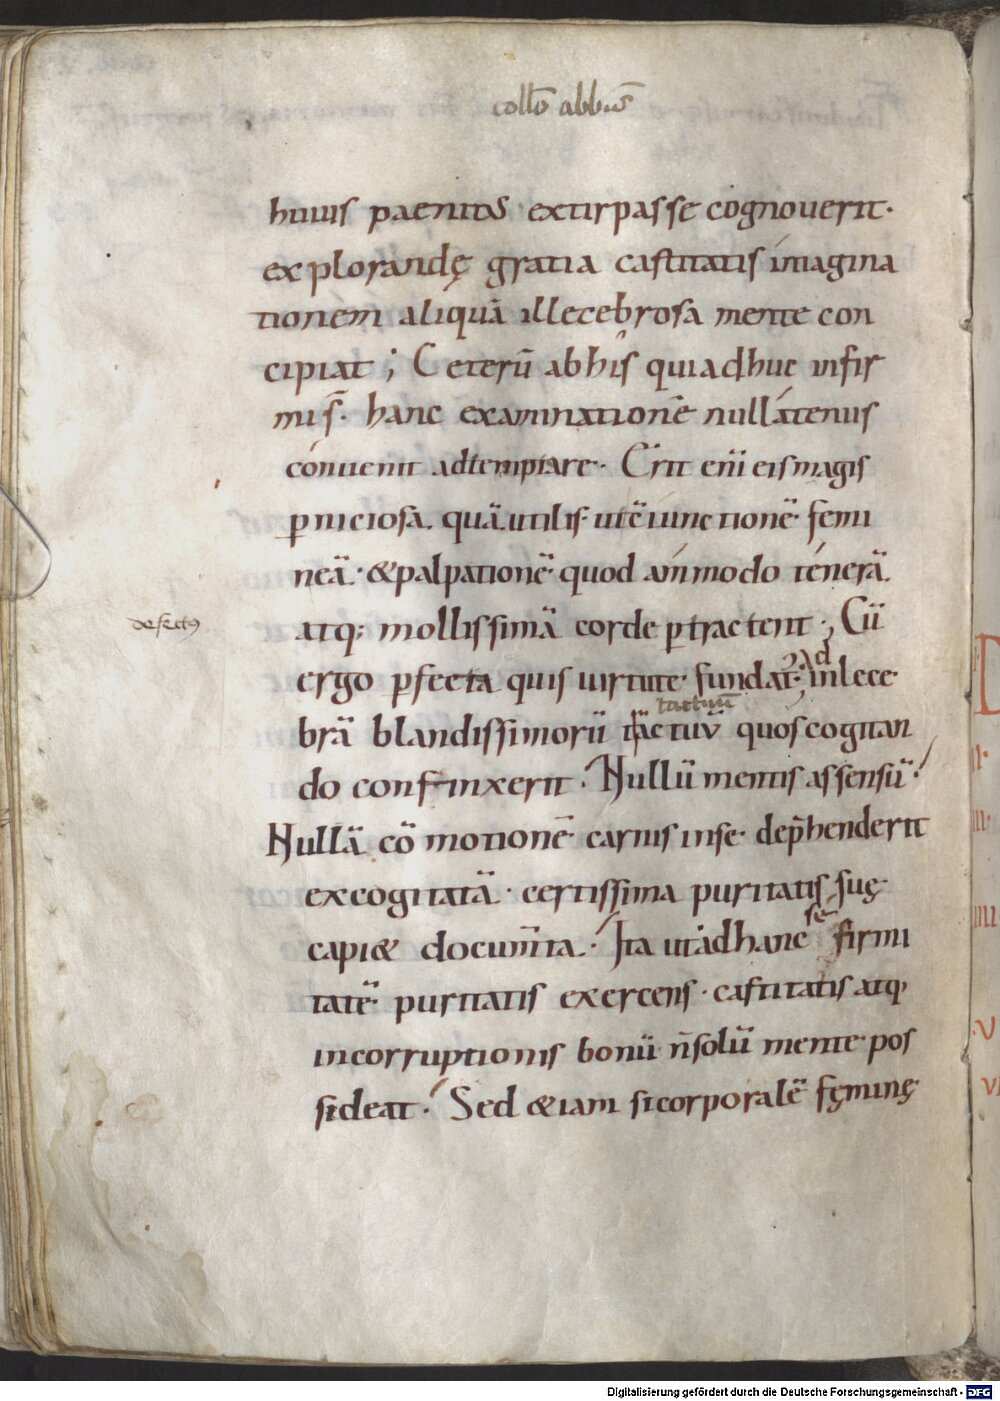 collō abbīs
huius paenitus extirpasse cognouerit·
explorandę gratia castitatis imagina
tionem aliquā illecebrosa mente con
cipiat ; Ceterū ab his qui adhuc infir
mi s̄· hanc examinationē nullatenus
conuenit adtemptare· Erit eni̅ eis magis
ꝑniciosa. quā utilis· ut ēiunctionē femi
neā· &palpationē· quod ammodo tenerā
atq; mollissimā corde ꝑtractent ; Cū
ergo ꝑfecta quis uirtute· fundat᷒· ad inlece
defectꝰ
tactum̅
brā blandissimorū tactuū quos cogitan
do confinxerit· Nullū mentis assensū·
Nullā cōmotionē carnis inse· dep̄henderit
excogitatā· certissima puritatis suę
capi& docum̅ta· Ita ut adhanc se firmi
tatē puritatis exercens· castitatis atq;
incorruptionis bonū n̄ solū mente pos
sideat· Sed &iam si corporalē fęminę
Digitalisierung gefördert durch die Deutsche Forschungsgemeinschaft - DFG